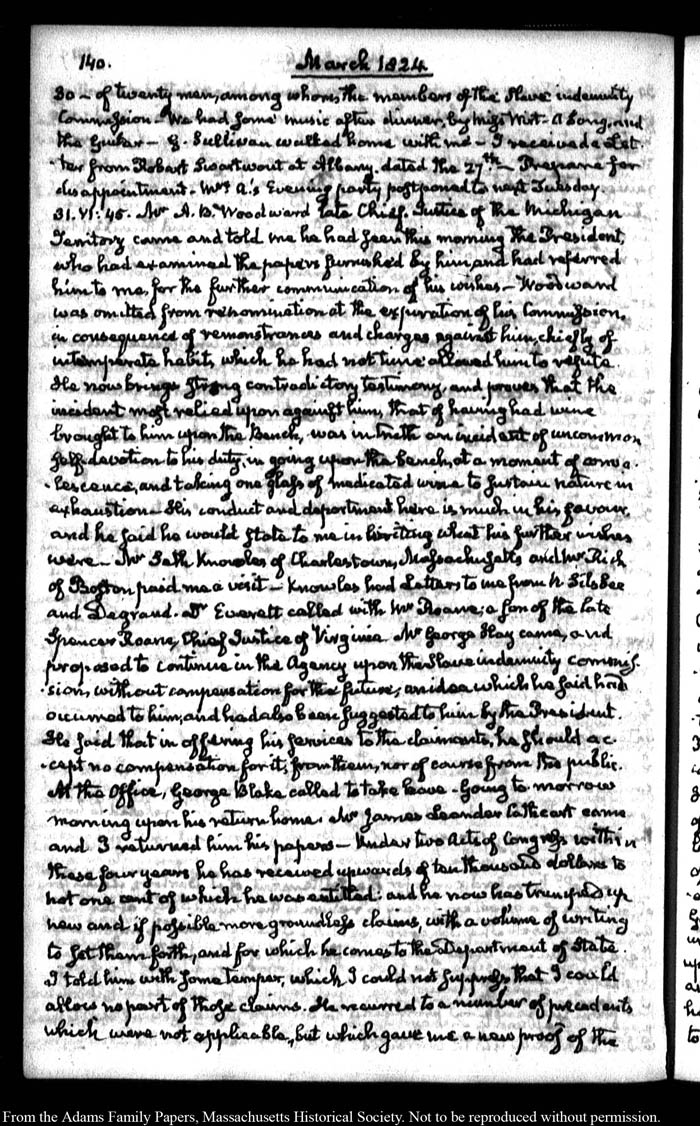 140.
March 1824
30 – of twenty men, among whom, the members of the Slave indemnity
Commission. We had some music after dinner, by Miss Wirt. A Song, and
the Guitar – G. Sullivan walked home with me – I received a Let-
ter from Robert Swartwout at Albany. dated the 27th – Prepare for
disappointment. Mrs A.'s Evening party postponed to next Tuesday.
31. VI: 45. Mr A. B. Woodward late Chief Justice of the Michigan
Territory came and told me he had seen this morning the President,
who had examined the papers furnished by him, and had referred
him to me, for the further communication of his wishes – Woodward
was omitted from renomination at the expiration of his Commission,
in consequence of remonstrances and charges against him, chiefly of
intemperate habits, which he had not time allowed him to refute.
He now brings strong contradictory testimony, and proves that the
incident most relied upon against him, that of having had wine
brought to him upon the Bench, was in truth an incident of uncommon
self-devotion to his duty, in going upon the bench, at a moment of conva-
lescence, and taking one glass of medicated wine to sustain nature in
exhaustion – His conduct and deportment here is much in his favour,
and he said he would state to me in writing what his further wishes
were – Mr Seth Knowles of Charlestown, Massachusetts and Mr Rich
of Boston paid me a visit – Knowles had Letters to me from N. Silsbee
and Degrand. Dr Everett called with Mr Roane; a son of the late
Spencer Roane, Chief Justice of Virginia. Mr George Hay came, and
proposed to continue in the Agency upon the Slave indemnity commis-
sion, without compensation for the future; an idea which he said had
occurred to him, and had also been suggested to him by the President.
He said that in offering his services to the claimants, he should ac-
cept no compensation for it, from them, nor of course from the public.
At the Office, George Blake called to take leave. Going to morrow
morning upon his return home. Mr James Leander Cathcart came
and I returned him his papers – Under two Acts of Congress within
these four years he has received upwards of ten thousand dollars to
not one cent of which he was entitled: and he now has trumped up
new and if possible more groundless claims, with a volume of writing
to set them forth, and for which he comes to the Department of State.
I told him with some temper, which I could not suppress, that I could
allow no part of those claims. He recurred to a number of precedents
which were not applicable, but which gave me a new proof of the
From the Adams Family Papers, Massachusetts Historical Society. Not to be reproduced without permission.